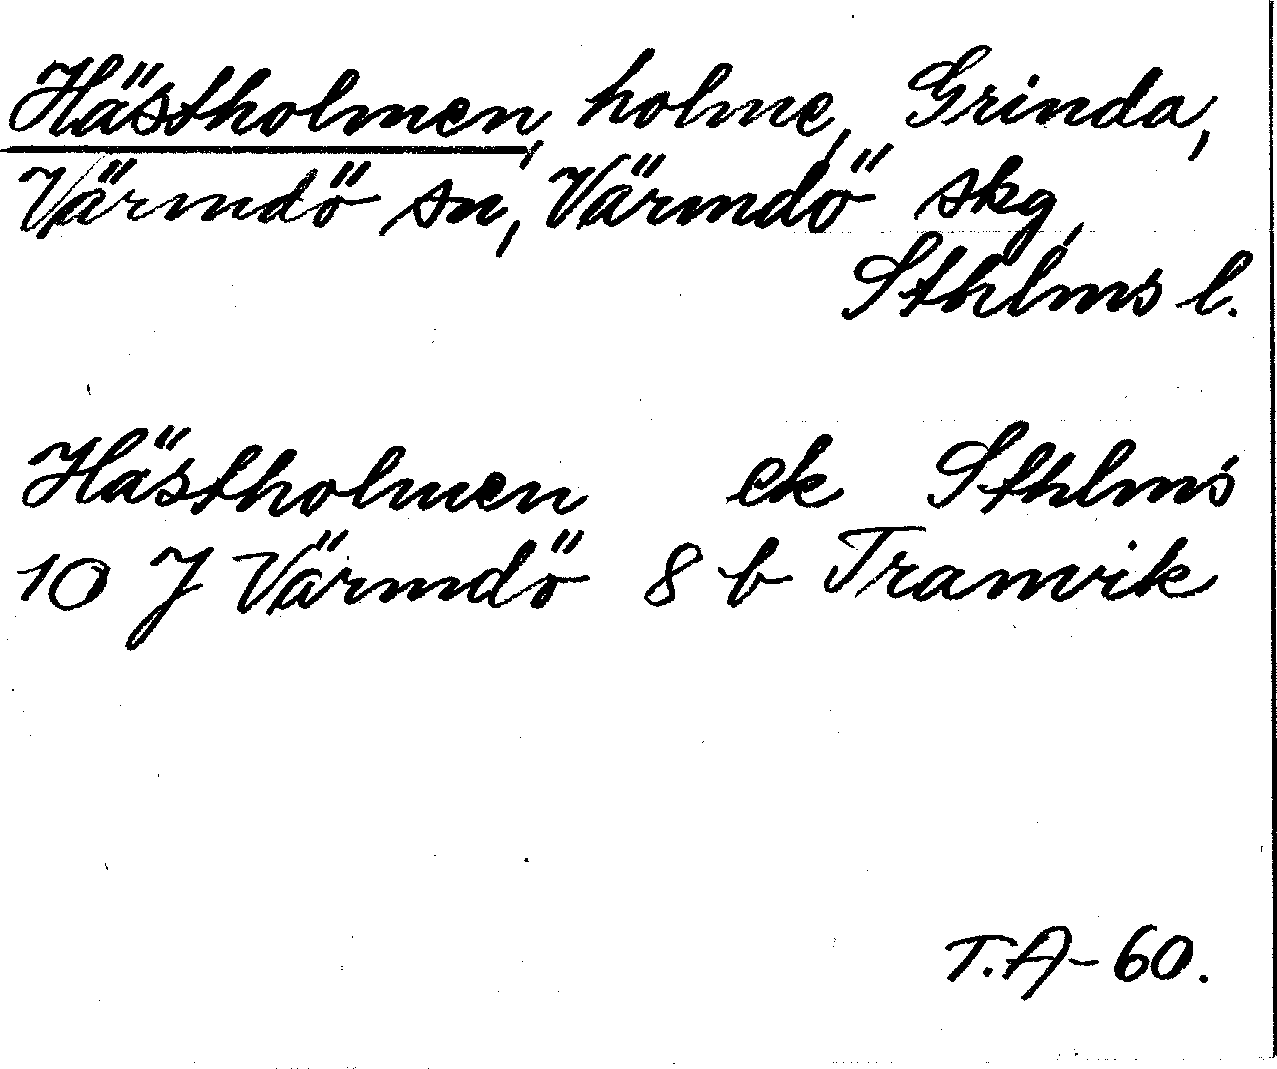 Hästholmen, holme, Grinda,
Värmdö sn, Värmdö skg,
Sthlms l.
Hästholmen ek Sthlms
10 J Värmdö 8 b Tranvik
T.A-60.